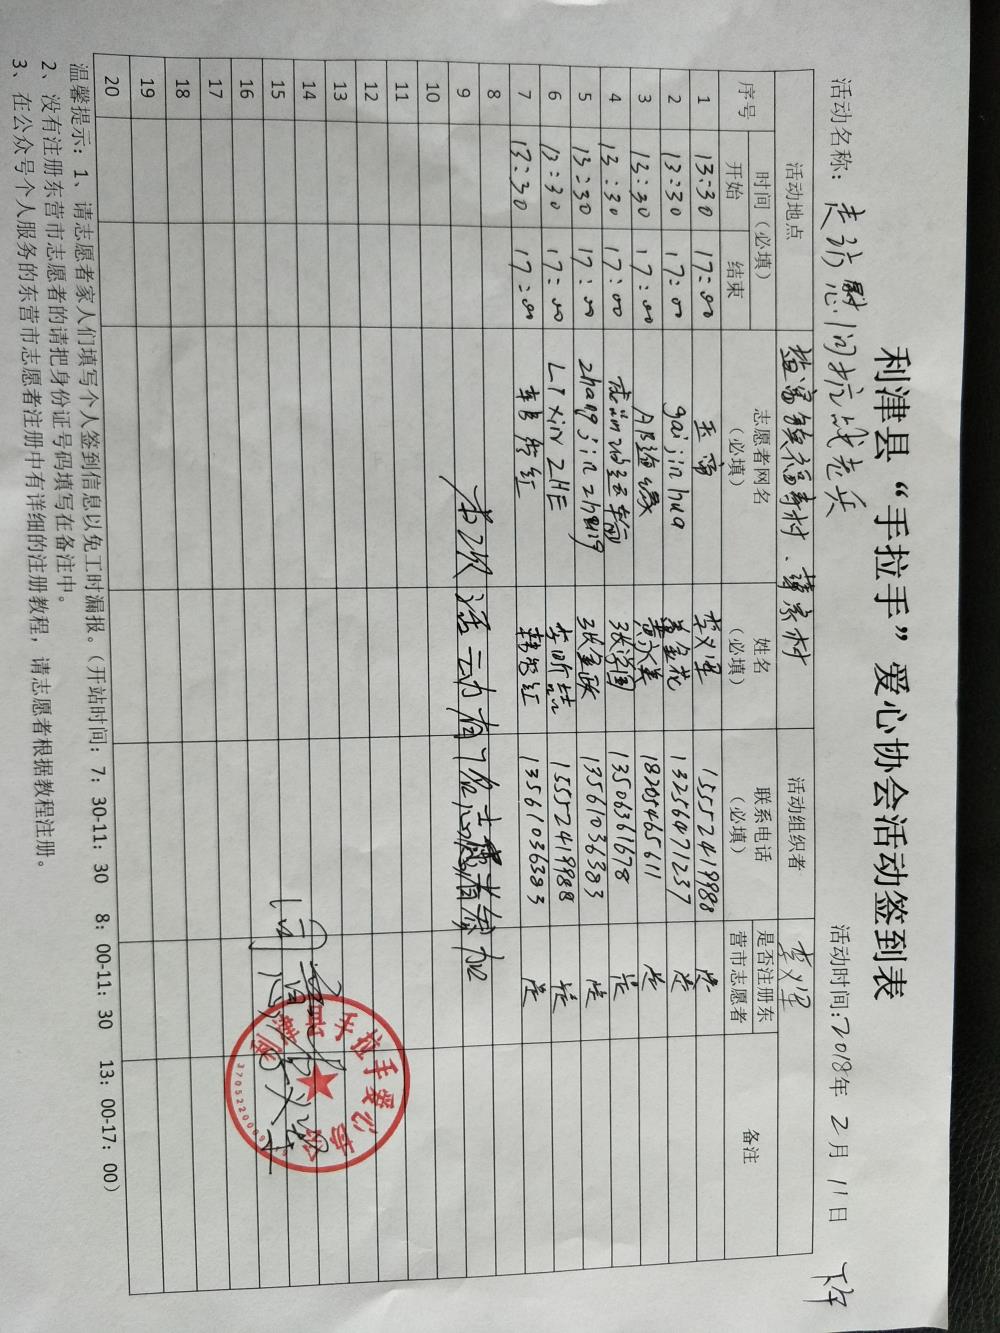 利津县“手拉手”爱心协会活动签到表
活动名称：走访慰问抗战老兵 活动时间:2018年2月11日 下午
活动地点 盐窝镇福寿村、薄家村 活动组织者 李义军
序号 时间（必填） 志愿者网名（必填） 姓名（必填） 联系电话（必填） 是否注册东营市志愿者 备注
开始 结束
1 13:30 17:00 李义军 15552419988 是
2 13:30 17:00 gaijinhua 盖金花 13256471237 是
3 13:30 17:00 18205465611 是
4 13:30 17:00 13506361678 是
5 13:30 17:00 zhangjinzheng 13561036383 是
6 13:30 17:00 LIXINZHE 李昕喆 15552419988 是
7 13:30 17:00 韩秀红 韩秀红 13561036383 是
8
9 本次活动有7名志愿者参加
10
11
12
13
14
15
16
17
18
19
20
利津县手拉手爱心协会
温馨提示：1、请志愿者家人们填写个人签到信息以免工时漏报。（开站时间：7：30-11：30 8：00-11：30 13：00-17：00）
2、没有注册东营市志愿者的请把身份证号码填写在备注中。
3、在公众号个人服务的东营市志愿者注册中有详细的注册教程，请志愿者根据教程注册。